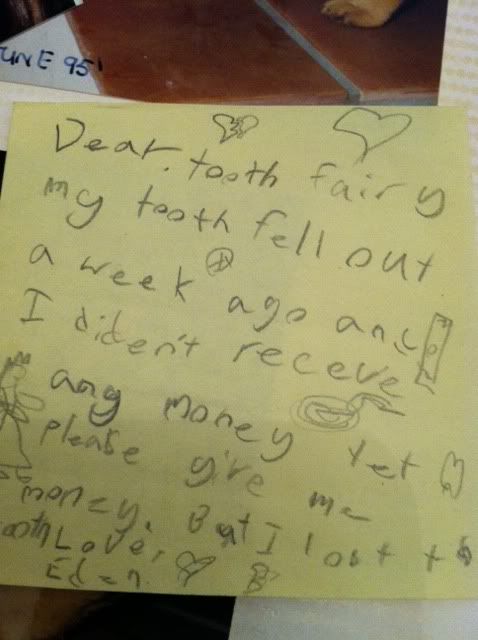 JUNE 95'
Dear tooth fairy
my tooth fell out
a week ago and
I diden't receve
any money yet
please give me
money. But I lost the
tooth Love,
Eden